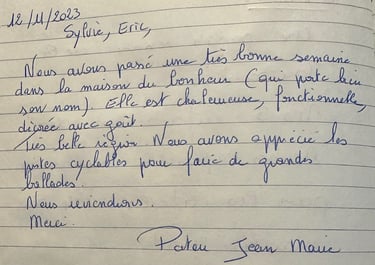 12/11/2023
Sylvie, Eric,
Nous avons passé une très bonne semaine
dans la maison du bonheur (qui porte bien
son nom). Elle est chaleureuse, fonctionnelle,
décorée avec goût.
Très belle région. Nous avons apprécié les
pistes cyclables pour faire de grandes
ballades.
Nous reviendrons.
Merci.
Jean Marie